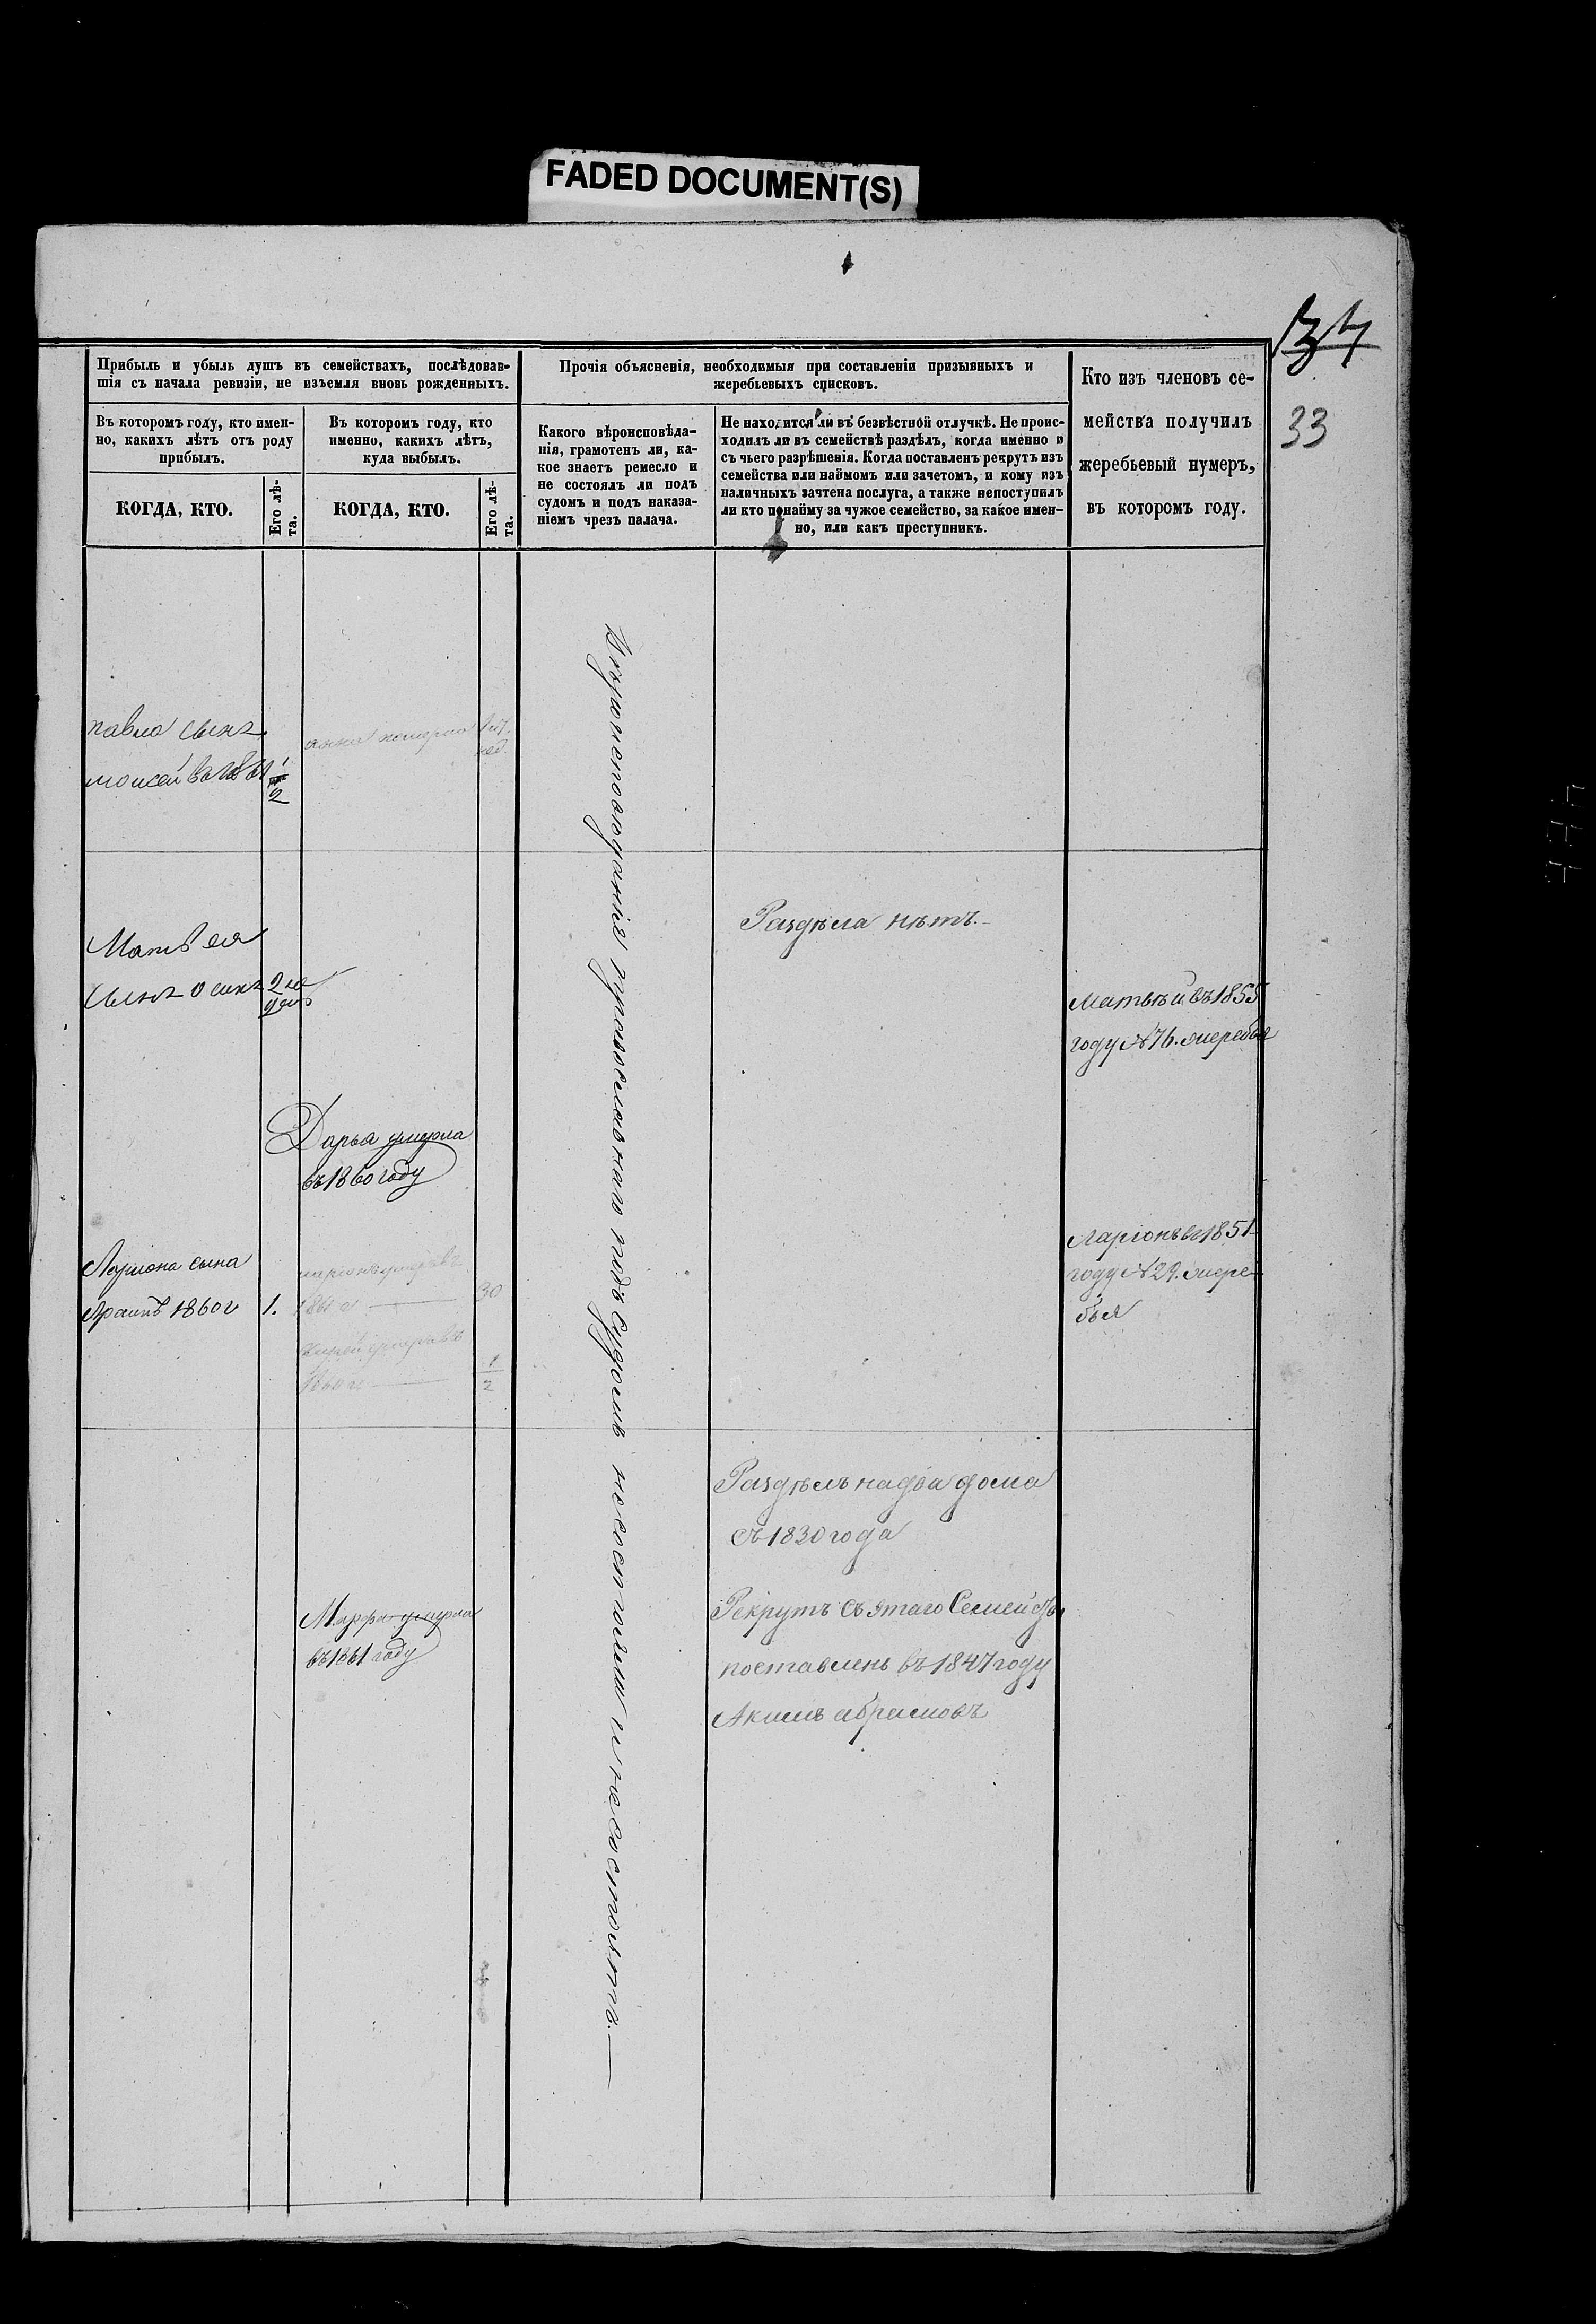 FADED DOCUMENT(S)
37
33
Прибыль и убыль душъ въ семействахъ, послѣдовав-
шія съ начала ревизіи, не изъемля вновь рожденныхъ.
Прочія объясненія, необходимыя при составленіи призывныхъ и
жеребьевыхъ списковъ.
Кто изъ членовъ се-
мейства получилъ
жеребьевый нумеръ,
въ которомъ году.
Въ которомъ году, кто имен-
но, какихъ лѣтъ отъ роду
прибылъ.
Въ которомъ году, кто
именно, какихъ лѣтъ,
куда выбылъ.
Какого вѣроисповѣда-
нія, грамотенъ ли, ка-
кое знаетъ ремесло и
не состоялъ ли подъ
судомъ и подъ наказа-
ніемъ чрезъ палача.
Не находится ли въ безвѣстной отлучкѣ. Не проис-
ходилъ ли въ семействѣ раздѣлъ, когда именно и
съ чьего разрѣшенія. Когда поставленъ рекрутъ изъ
семейства или наймомъ или зачетомъ, и кому изъ
наличныхъ зачтена послуга, а также непоступилъ
ли кто понайму за чужое семейство, за какое имен-
но, или какъ преступникъ.
КОГДА, КТО.
Его лѣ-
та.
КОГДА, КТО.
Его лѣ-
та.
павла сынъ
моисей
1/2
анна померла
нед.
Вѣроисповѣданія православнаго подъ судомъ несостояли и несостоятъ.
Раздѣла нѣтъ.
Матвея
сынъ осипъ 2 не
дель
Матвѣй въ 1855
году № 76. жеребья
Дарья умерла
въ 1860 году
Лариона сына
1860 г 1.
ларіонъ умеръ въ
1861 г 30
умеръ въ
1860 г. 1/2
Ларіонъ въ 1851
году № 29. жере-
бья
Раздѣлъ на два дома
съ 1830 года
Марфа умерла
въ 1861 году
Рекрутъ съ этаго Семейства
поставленъ въ 1847 году
Акимъ абрамовъ